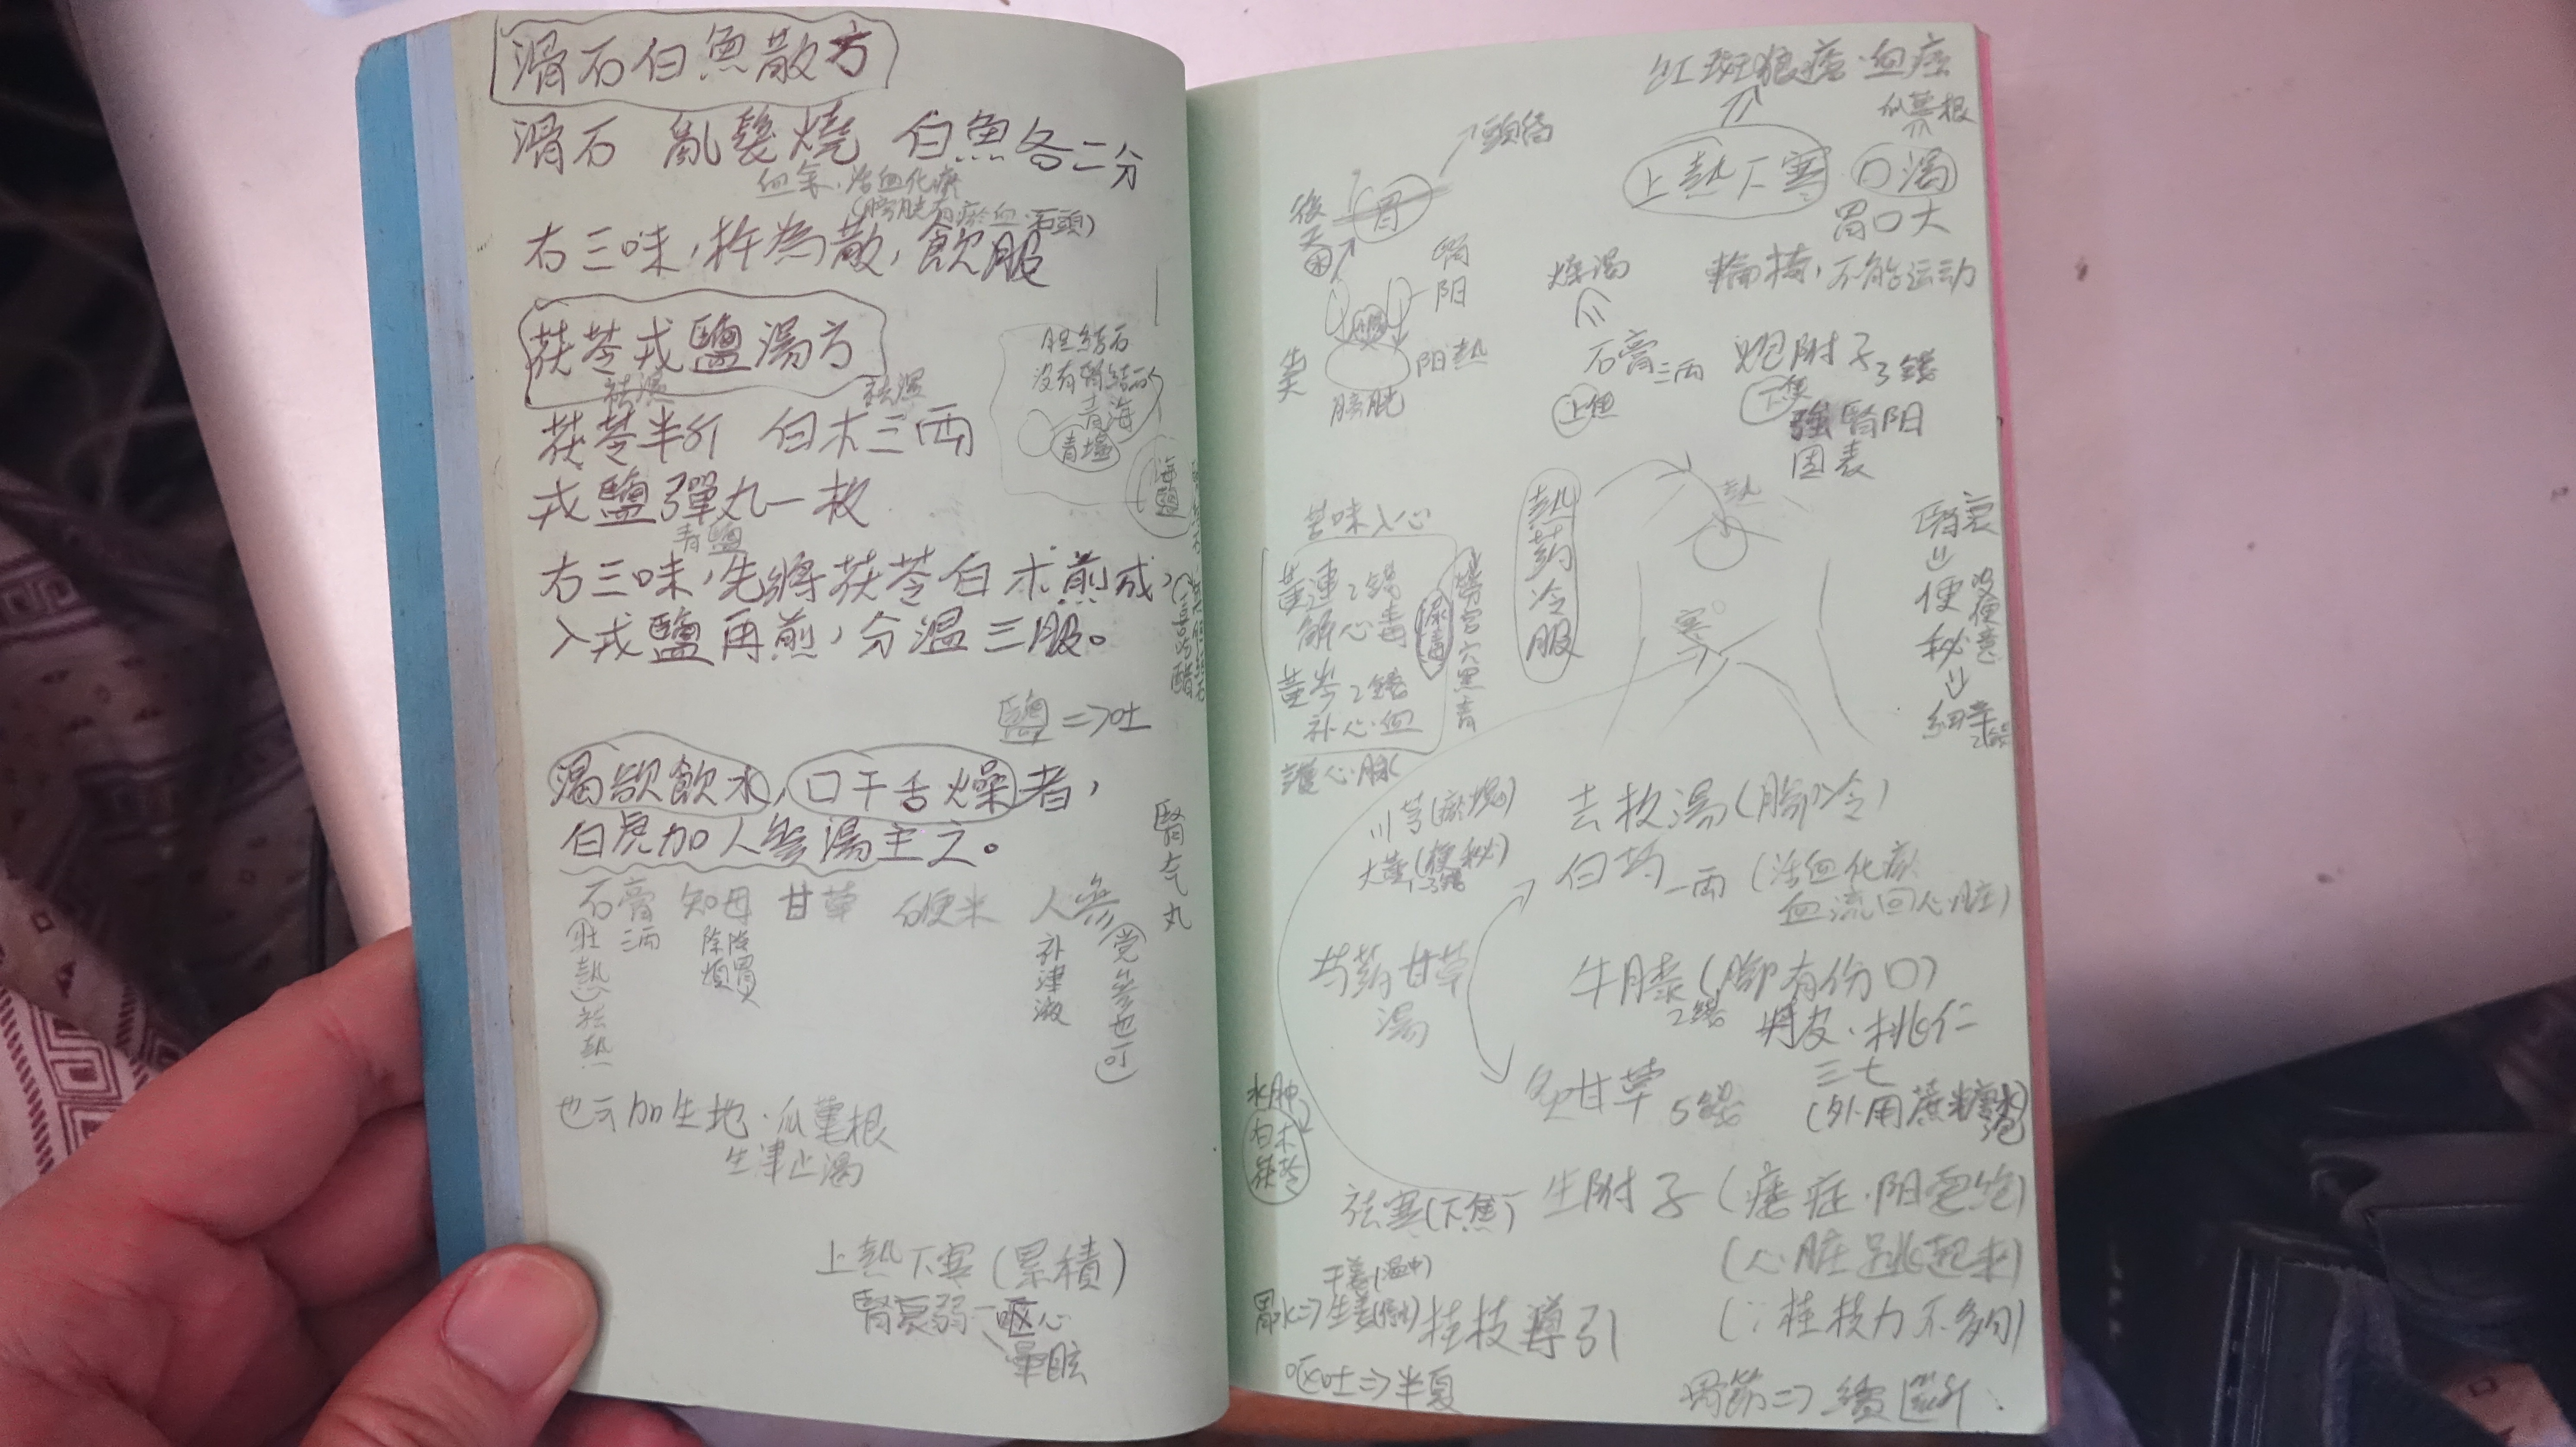 滑石白魚散方
滑石 亂髮燒 白魚各二分
血余·活血化瘀
(膀胱有瘀血·石頭)
右三味,杵為散,飲服
茯苓戎鹽湯方
祛濕 祛濕
茯苓半斤 白朮三両
戎鹽彈丸一枚
青鹽
胆結石
没有腎結石
青海
青塩
海鹽
右三味,先將茯苓白朮煎成,
入戎鹽再煎,分溫三服。
鹽=>吐
渴欲飲水,口干舌燥者,
白虎加人參湯主之。
腎气丸
石膏 知母 甘草 粳米 人參
三両
(壯熱)祛熱
除煩
补津液
(党參也可)
也可加生地·瓜蔞根
生津止渴
上熱下寒(累積)
腎衰弱—嘔心
暈眩
红斑狼瘡·血症
瓜蔞根
上熱下寒 口渴
胃口大
輪椅,不能运动
頭痛
胃
後天
腎阳
先天
阳熱
膀胱
燥渴
石膏三両
上焦
炮附子3錢
下焦
強腎阳
固表
熱药冷服
熱
寒
腎衰
便秘
没便意
細辛2錢
苦味入心
黃連2錢
解心毒
黃芩2錢
补心血
護心脉
尿毒
勞宮穴黑青
川芎(瘀塊)
大黃(便秘)
1-3錢
去杖湯(腳冷)
白芍一両(活血化瘀
血流回心脏)
芍药甘草
湯
牛膝(腳有伤口)
2錢
丹皮·桃仁
三七
(外用蔗糖水泡)
炙甘草5錢
水肿
白朮
茯苓
祛寒(下焦)
生附子(痿症·阳
(心脏跳起来)
(∵桂枝力不够)
干姜(温中)
胃水=>生姜
桂枝導引
呕吐=>半夏
骨節=>續斷